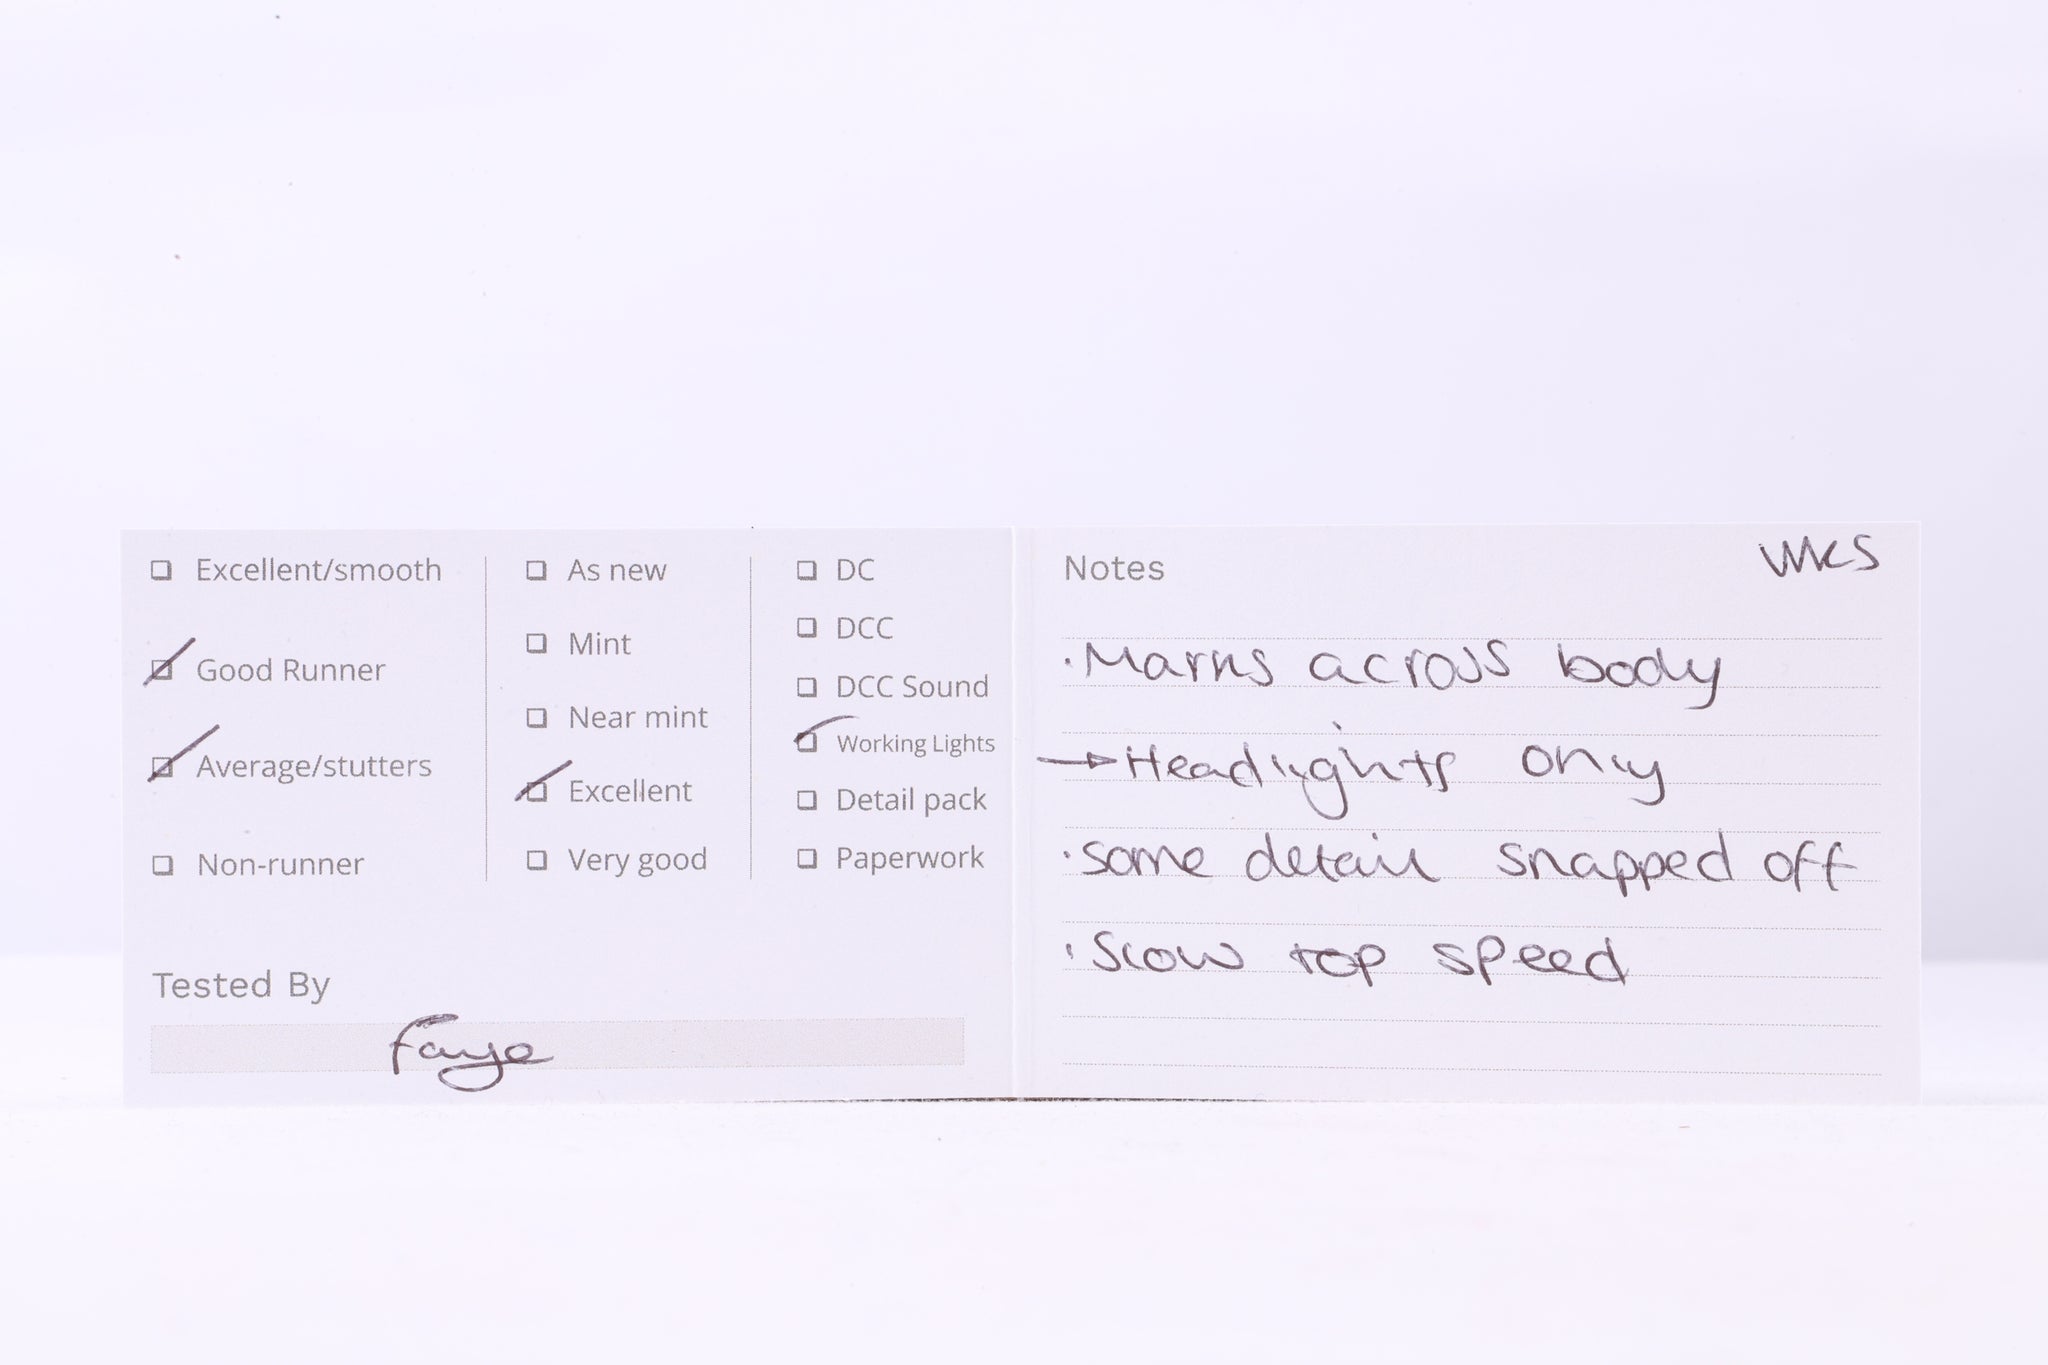 Excellent/smooth
Good Runner
Average/stutters
Non-runner
As new
Mint
Near mint
Excellent
Very good
DC
DCC
DCC Sound
Working Lights
Detail pack
Paperwork
Tested By
Faye
Notes
WKS
· Marks across body
→ Headlights only
· some detail snapped off
· Slow top speed